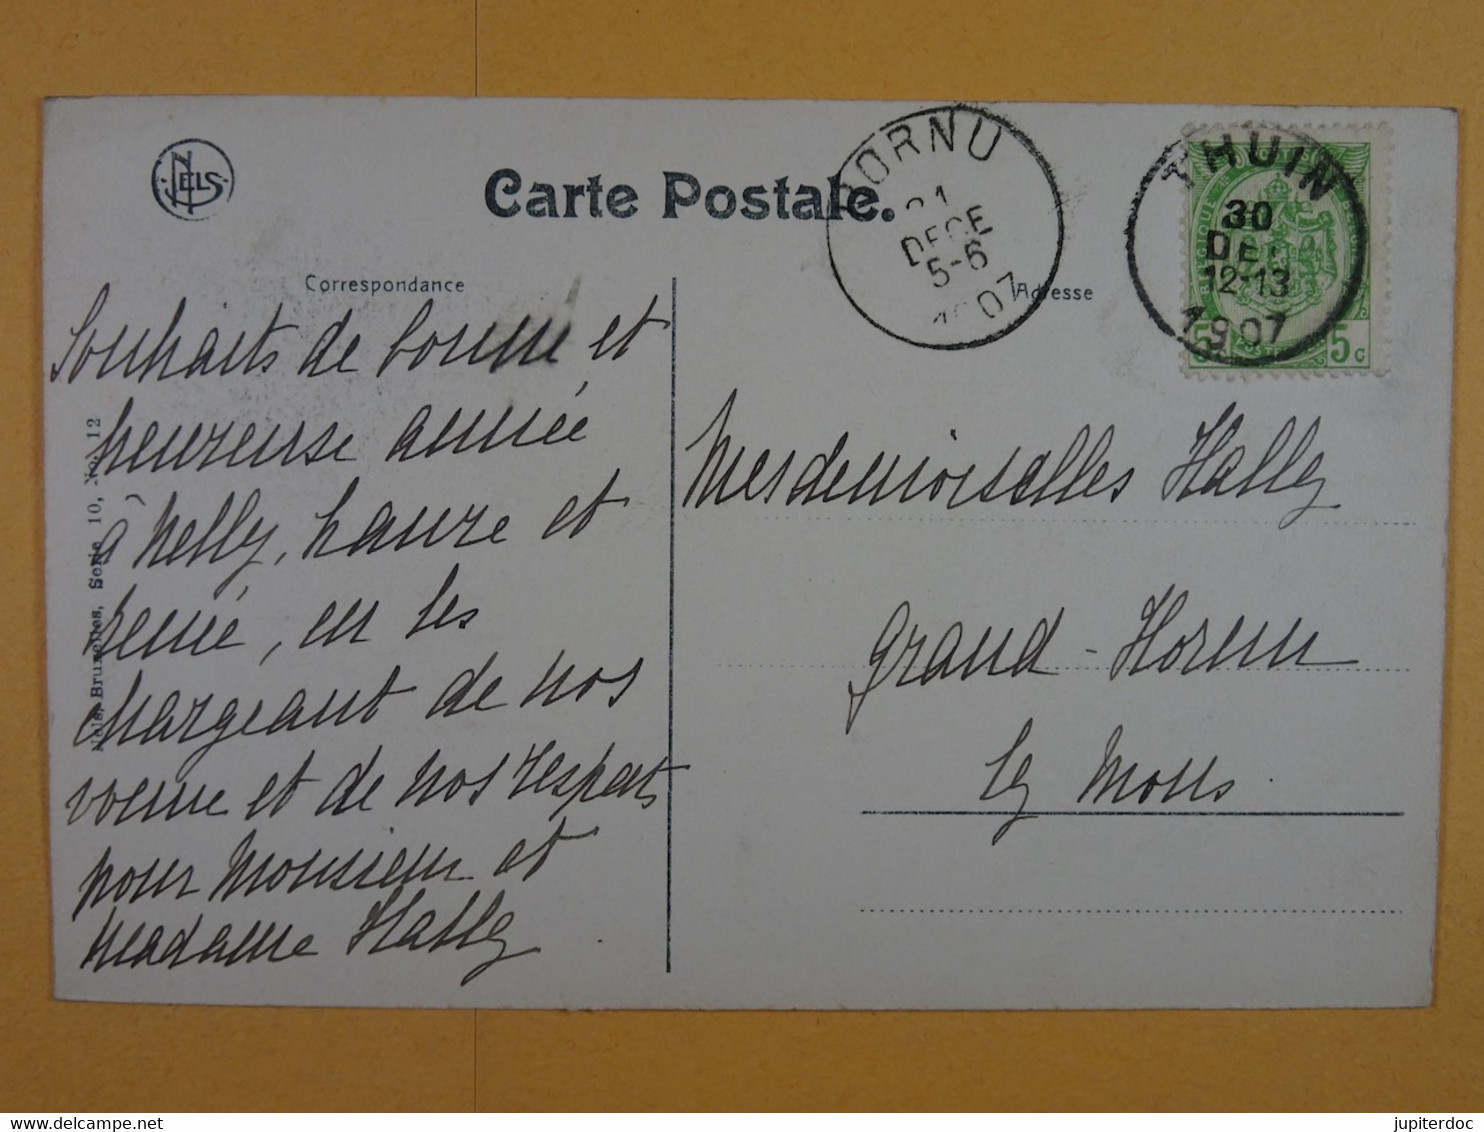 NELS
Carte Postale.
HORNU
DECE
5-6
1907
THUIN
30
DEC
12-13
1907
5 5c
Correspondance
Adresse
Souhaits de bonne et
heureuse année
à Nelly, Laure et
Renée, en les
chargeant de nos
voeux et de nos respects
pour Monsieur et
Madame Hally
Mesdemoiselles Hally
Grand-Hornu
lez Mons.
Nels, Bruxelles, Serie 10, No. 12
jupiterdoc